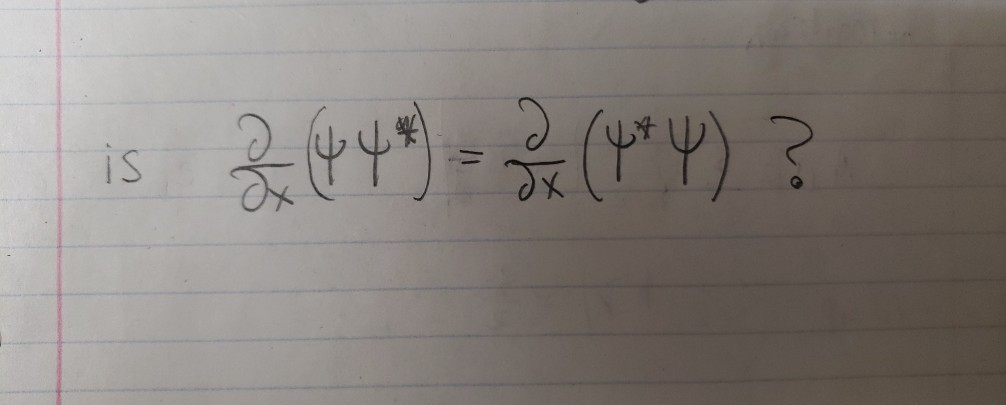 is ∂/∂x (ψψ*) = ∂/∂x (ψ*ψ) ?